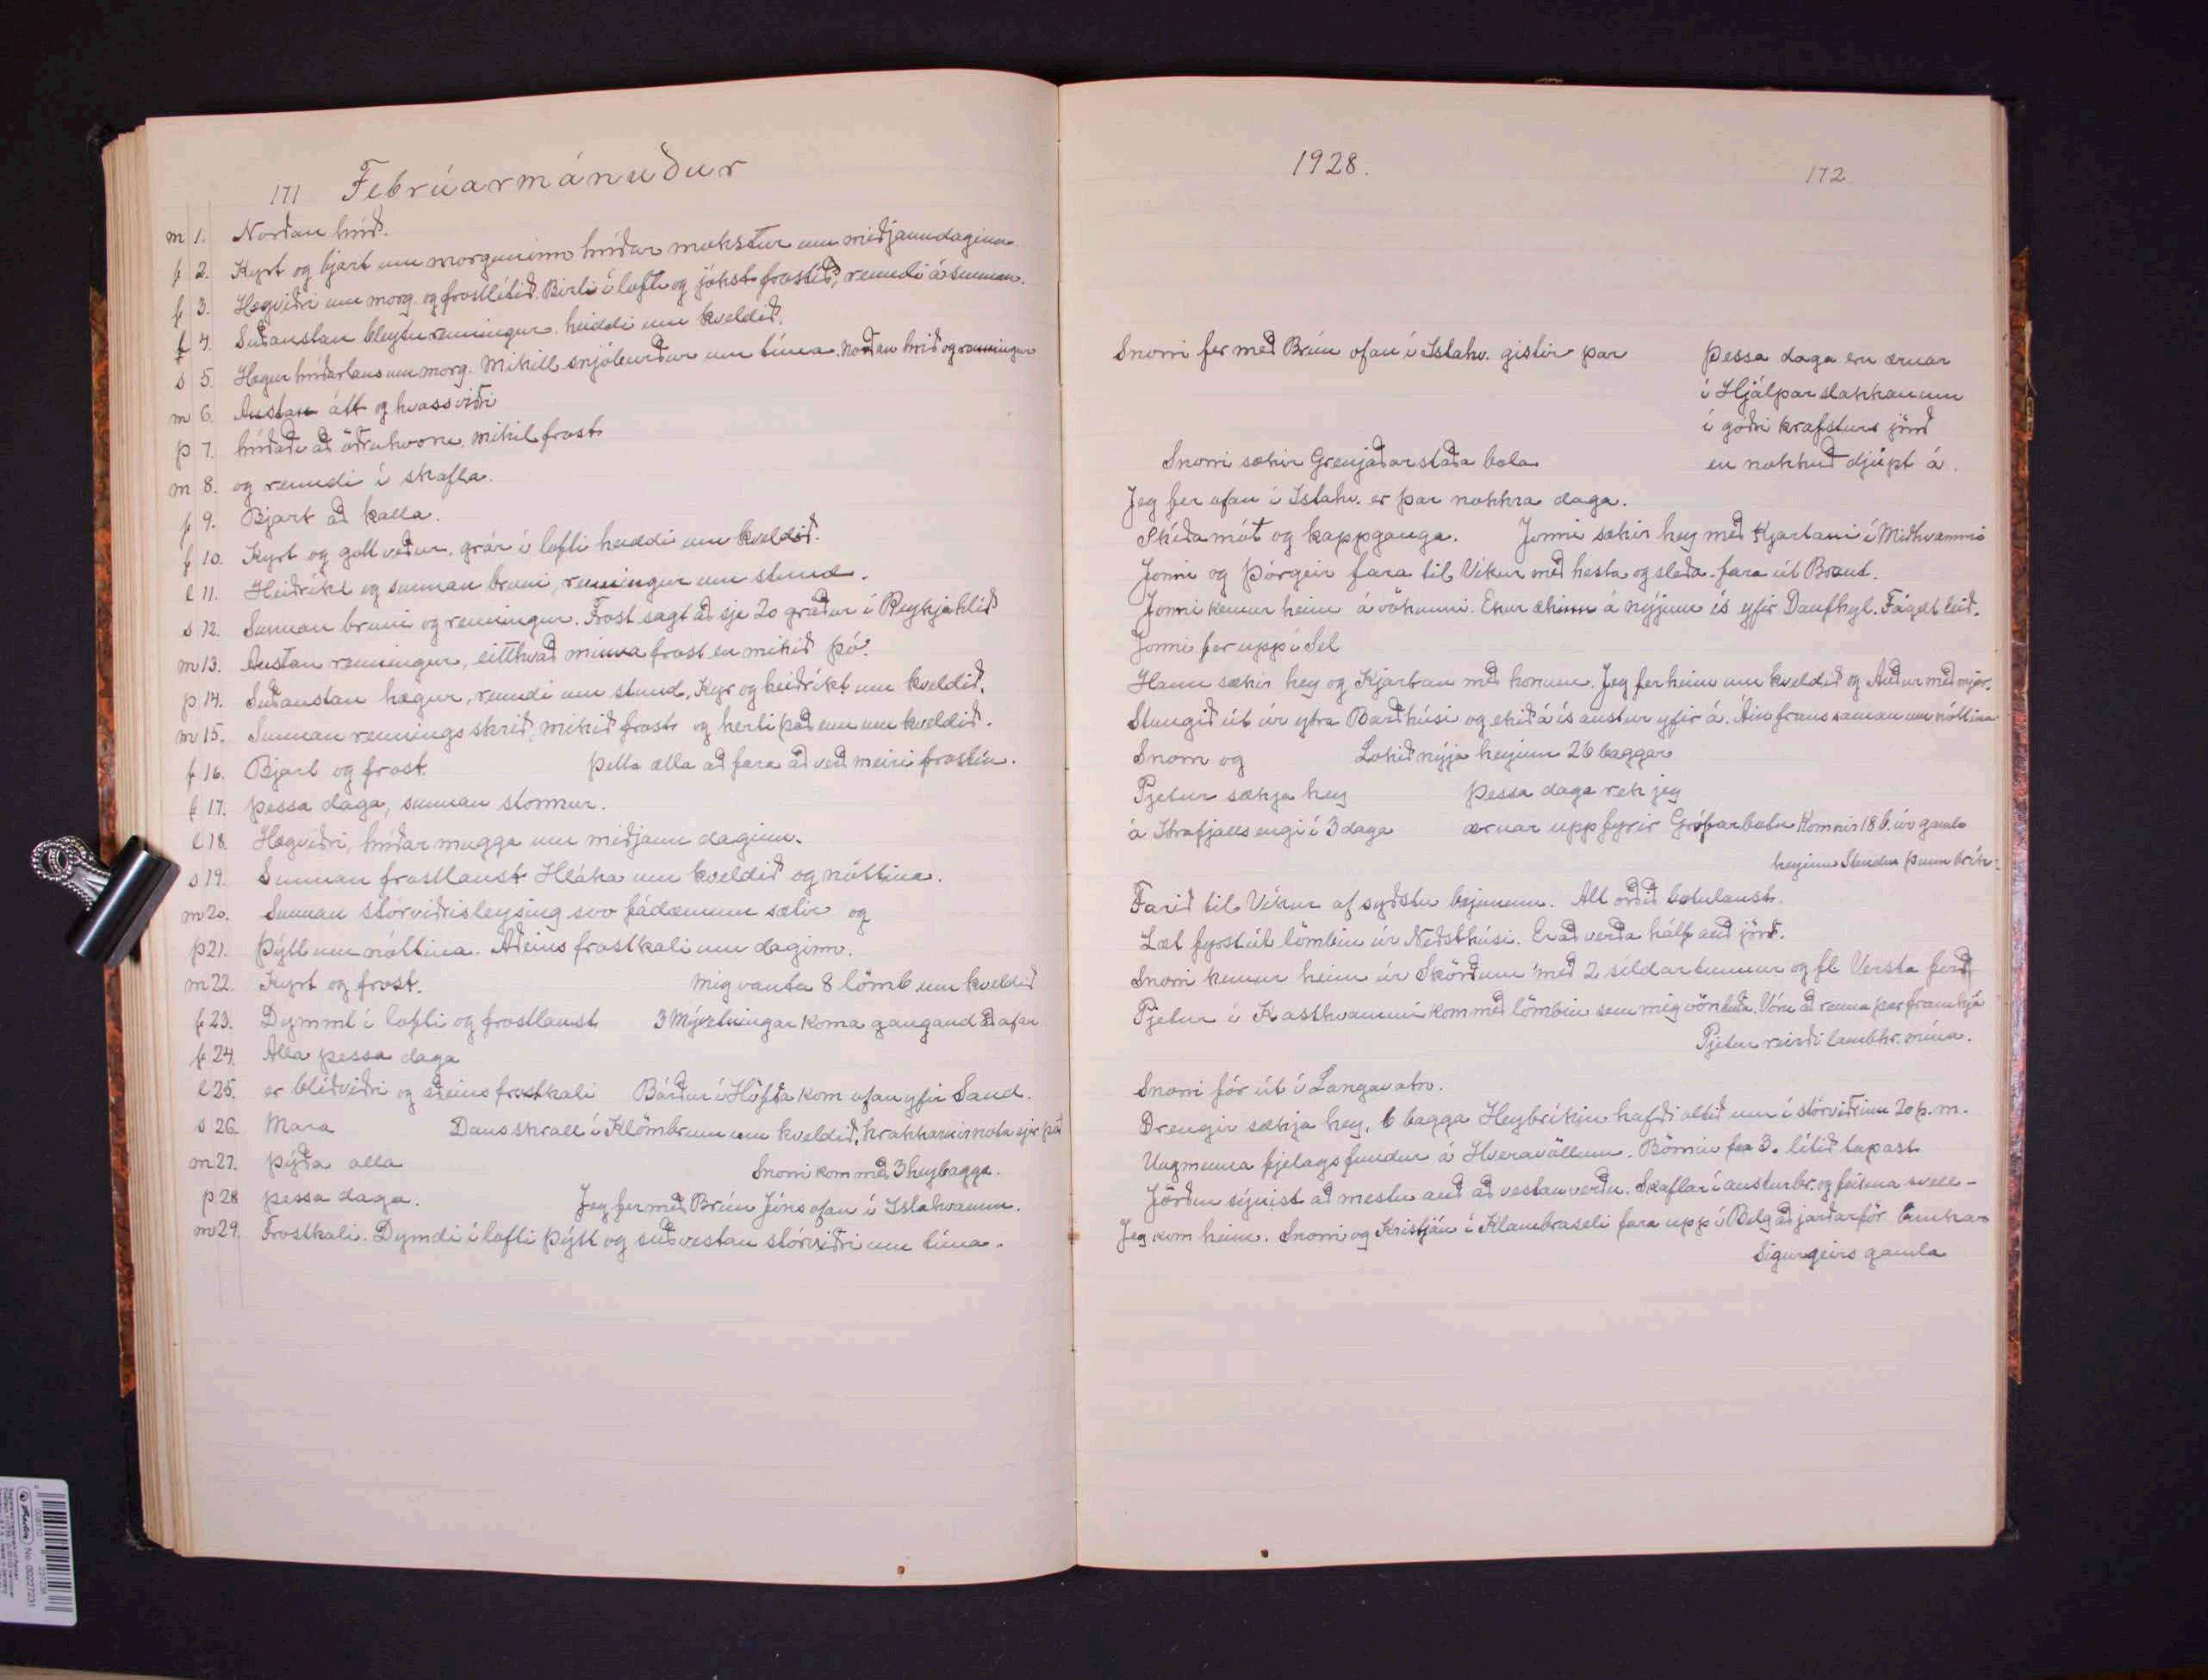 171 Febrúarmánuður
m 1. Norðan hríð.
f 2. Kyrt og bjart um morguninn hríðar mokstur um miðjann daginn.
f 3. Hægviðri um morg. og frostlítið. Birti í lofti og jókst frostið, renndi á sunnan.
f 4. Suðaustan bleytu renningur. heiddi um kveldið.
s 5. Hægur hríðarlaus um morg. Mikill snjóburður um tíma. Norðan hríð og renningur
m 6. Austan átt og hvassviðri
þ 7. hríðaði að öðruhvoru, mikil frost
m 8. og renndi í skafla.
f 9. Bjart að kalla.
f 10. Kyrt og gott veður, grár í lofti heiddi um kveldið.
l 11. Heiðríkt og sunnan bruni, renningur um stund.
s 12. Sunnan bruni og renningur. Frost sagt að sje 20 gráður í Reykjahlíð
m 13. Austan renningur, eitthvað minna frost en mikið þó.
þ 14. Suðaustan hægur, renndi um stund, Kyr og heiðríkt um kveldið.
m 15. Sunnan rennings skrið, mikið frost og herti það enn um kveldið.
f 16. Bjart og frost. Þetta ætla að fara að verð meiri frostin.
f 17. þessa daga, sunnan stormur.
l 18. Hægviðri, hríðar mugga um miðjann daginn.
s 19. Sunnan frostlaust Hláka um kveldið og nóttina.
m 20. Sunnan stórviðrisleysing svo fádæmum sætir og
þ 21. Þýtt um nóttina. Aðeins frostkali um daginn.
m 22. Kyrt og frost. Mig vanta 8 lömb um kveldið
f 23. Dymmt í lofti og frostlaust 3 Mývetningar koma gangand að ofan
f 24. Alla þessa daga
l 25. er blíðviðri og aðeins frostkali Bárður í Höfða kom ofan yfir Sand.
s 26. Mara Dansskrall í Klömbrum um kveldið, krakkarnir nota sjer það
m 27. þýða alla Snorri kom með 3 heybagga.
þ 28 þessa daga. Jeg fer með Brún Jóns ofan í Íslahvamm.
m 29. Frostkali. Dymdi í lofti þýtt og suðvestan stórviðri um tíma.
1928.
172
Snorri fer með Brún ofan í Íslahv. gistir þar
Þessa daga eru ærnar
í Hjálparslakkanum
í góðri krafsturs jörð
en nokkuð djúpt á.
Snorri sækir Grenjaðarstaða bola
Jeg fer ofan í Íslahv. er þar nokkra daga.
Skíðamót og kappganga. Jonni sækir hey með Kjartani í Miðhvammi
Jonni og Þórgeir fara til Víkur með hesta og sleða. fara út Braut.
Jonni kemur heim á vökunni. á nýjum ís yfir Daufhyl. Fágæt leið.
Jonni fer upp í Sel
Hann sækir hey og Kjartan með honum. Jeg fer heim um kveldið og Auður með mjer.
Stungið út úr ytra Barðhúsi og ekið á ís austur yfir á. Áin fraus saman um nóttina
Snorri og Lokið nýja heyinu 26 baggar
Pjetur sækja hey Þessa daga rek jeg
á Hrafjallsengi í 3 daga ærnar upp fyrir Grófarbotn Komnir 18 b. úr gamla
heyinu Stendur þunn brík:
Farið til Víkur af syðstu bæjunum. Alt orðið botulaust.
Læt fyrst út lömbin úr Neðsthúsi. Er að verða hálf auð jörð.
Snorri kemur heim úr Skörðum með 2 síldar tunnur og fl Versta ferð
Pjetur í Kasthvammi kom með lömbin sem mig vöntuðu. Vóru að renna þar framhjá
Pjetur reisði lambhr. mína.
Snorri fór út í Langavatn.
Drengir sækja hey, 6 bagga Heybríkin hafði oltið um í stórviðrinu 20 þ. m.
Ungmenna fjelags fundur á Hveravöllum. Börnin fóru 3. lítið tapast
Jörðin sýnist að mestu auð að vestanverðu. Skaflar í austurbr. og feikna svell-
Jeg kom heim. Snorri og Kristján í Klambraseli fara upp í Belg að jarðarför
Sigurgeirs gamla